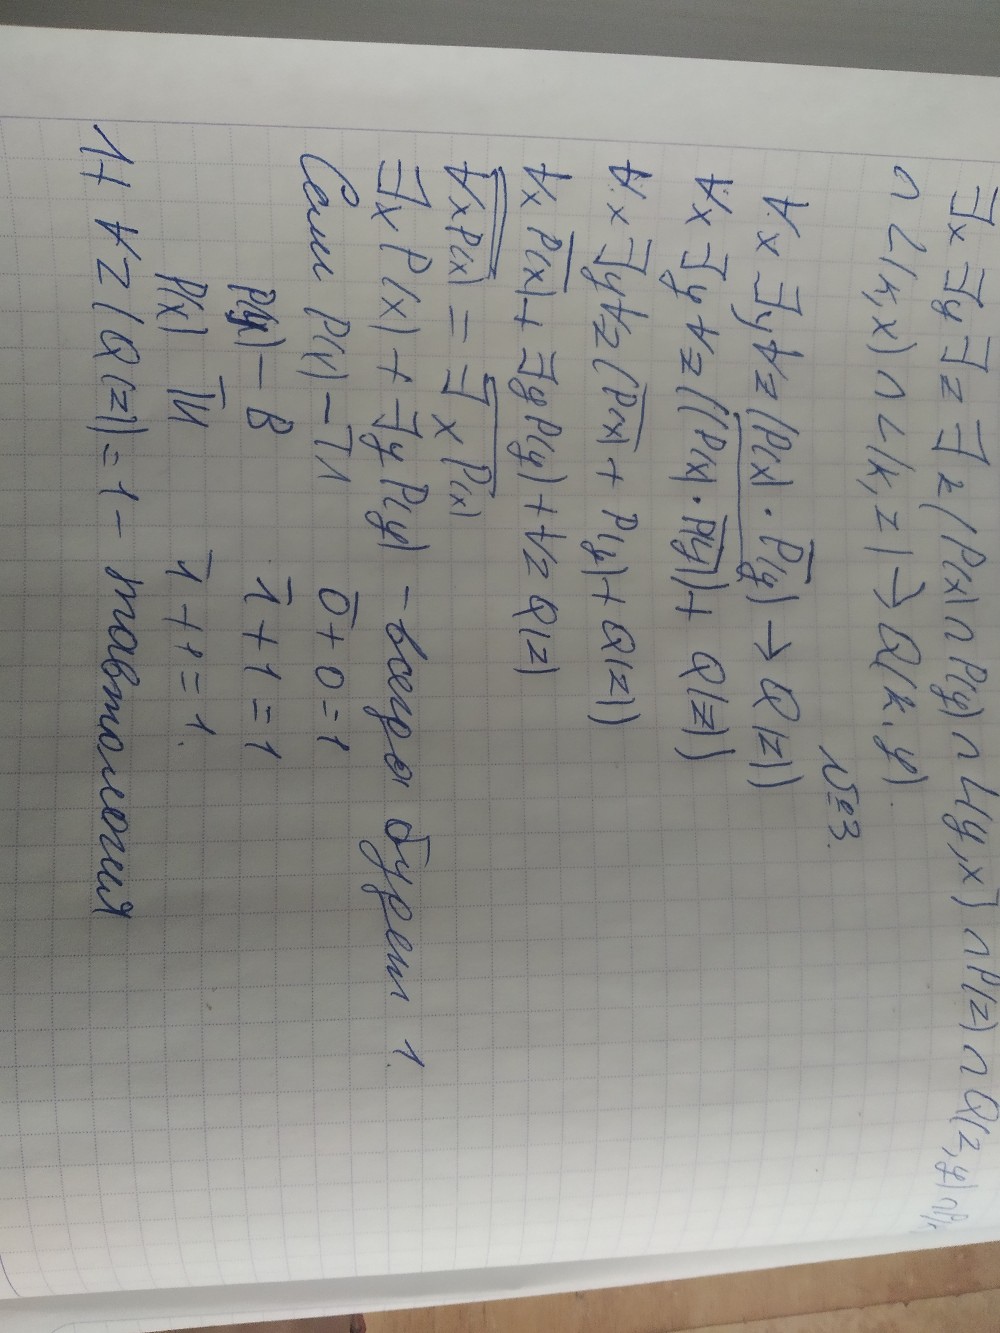 ∃x ∃y ∃z ∃k (P(x) ∩ P(y) ∩ L(y,x) ∩ P(z) ∩ Q(z,y) ∩
∩ L(k,x) ∩ L(k,z) → Q(k,y)
№3.
∀x ∃y ∀z (P(x) · P̅(̅y̅)̅ → Q(z))
∀x ∃y ∀z ((P(x) · P̅(̅y̅)̅) + Q(z))
∀x ∃y ∀z (P̅(̅x̅)̅ + P(y) + Q(z))
∀x P̅(̅x̅)̅ + ∃y P(y) + ∀z Q(z)
∀x P(x) = ∃x P(x)
∃x P(x) + ∃y P(y) – всегда будет 1.
Если P(x) – ТЛ 0̅ + 0 = 1
P(x) – В 1̅ + 1 = 1
P(x) 1̅ + 1 = 1.
1 + ∀z (Q(z)) = 1 – тавтология